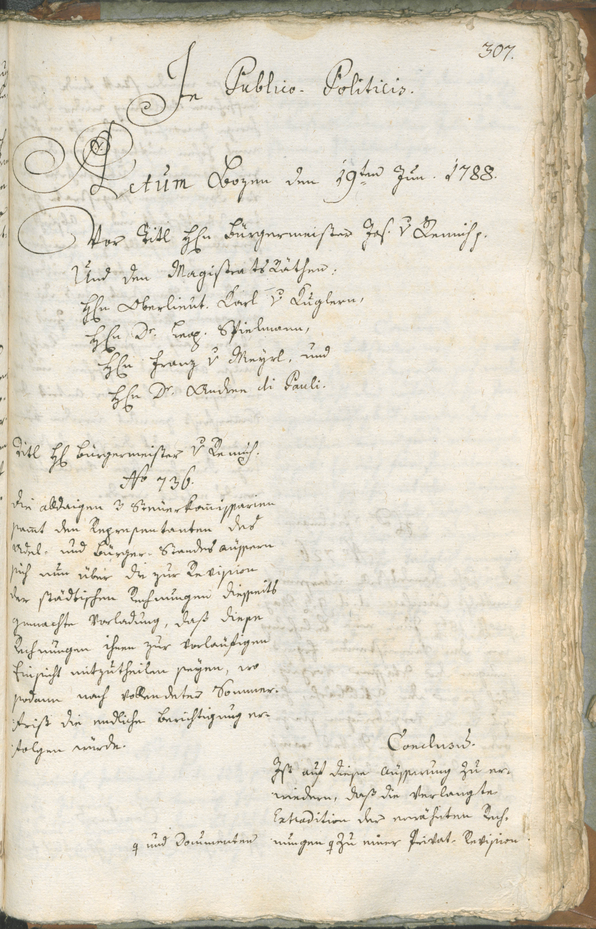 307.
In Publico-Politicis.
Actum Bozen den 19ten Jun. 1788.
Vor Titl Hn Bürgermeister Jos. v Remich,
Und den Magistratsräthen:
Hn Oberlieut. Carl v Kuglern,
Hn Dr. Leop. Spielmann,
Hn Franz v Meyrl, und
Hn Dr Andree di Pauli.
Titl H Bürgermeister v Remich.
No 736.
Die alldaigen 3 Steuerkommissarien
sammt den Representanten des
Adel- und Bürger-Standes äussern
sich nun über die zur Revision
der städtischen Rechnungen diesseits
gemachte Vorladung, daß diese
Rechnungen ihnen zur vorläufigen
Einsicht mitzutheilen seyen, wo
sodann nach vollendeter Sommer-
frist die endliche Berichtigung er-
folgen würde.
Conclusum.
Ist auf diese Äusserung zu er-
wiedern, daß die verlangte
Extradition der erwähnten Rech-
nungen zu einer Privat-Revision
und Documenten